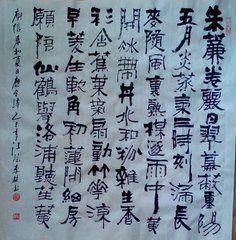 朱簾卷麗日翠幕蔽重陽
五月炎蒸氣三時刻漏長
麥隨風裏熟楳逐雨中黃
開冰帶井水和粉雜生香
衫含蕉葉氣扇動竹華涼
早菱生軟角初蓮開細房
願陪仙鶴舉洛浦聽笙簧
庾信奉和夏日應令詩